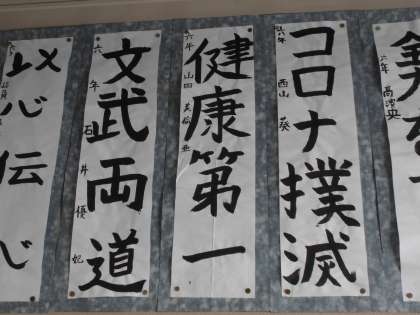 六年 高澤央
コロナ撲滅
六年 西山 葵
健康第一
六年 山田
文武両道
六年 石井優妃
以心伝心